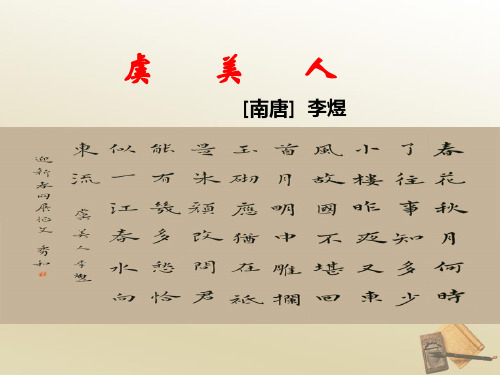 虞美人
[南唐] 李煜
春花秋月何時
了往事知多少
小樓昨夜又東
風故國不堪回
首月明中雕欄
玉砌應猶在祗
是朱顏改問君
能有幾多愁恰
似一江春水向
東流 虞美人李煜
迎新春